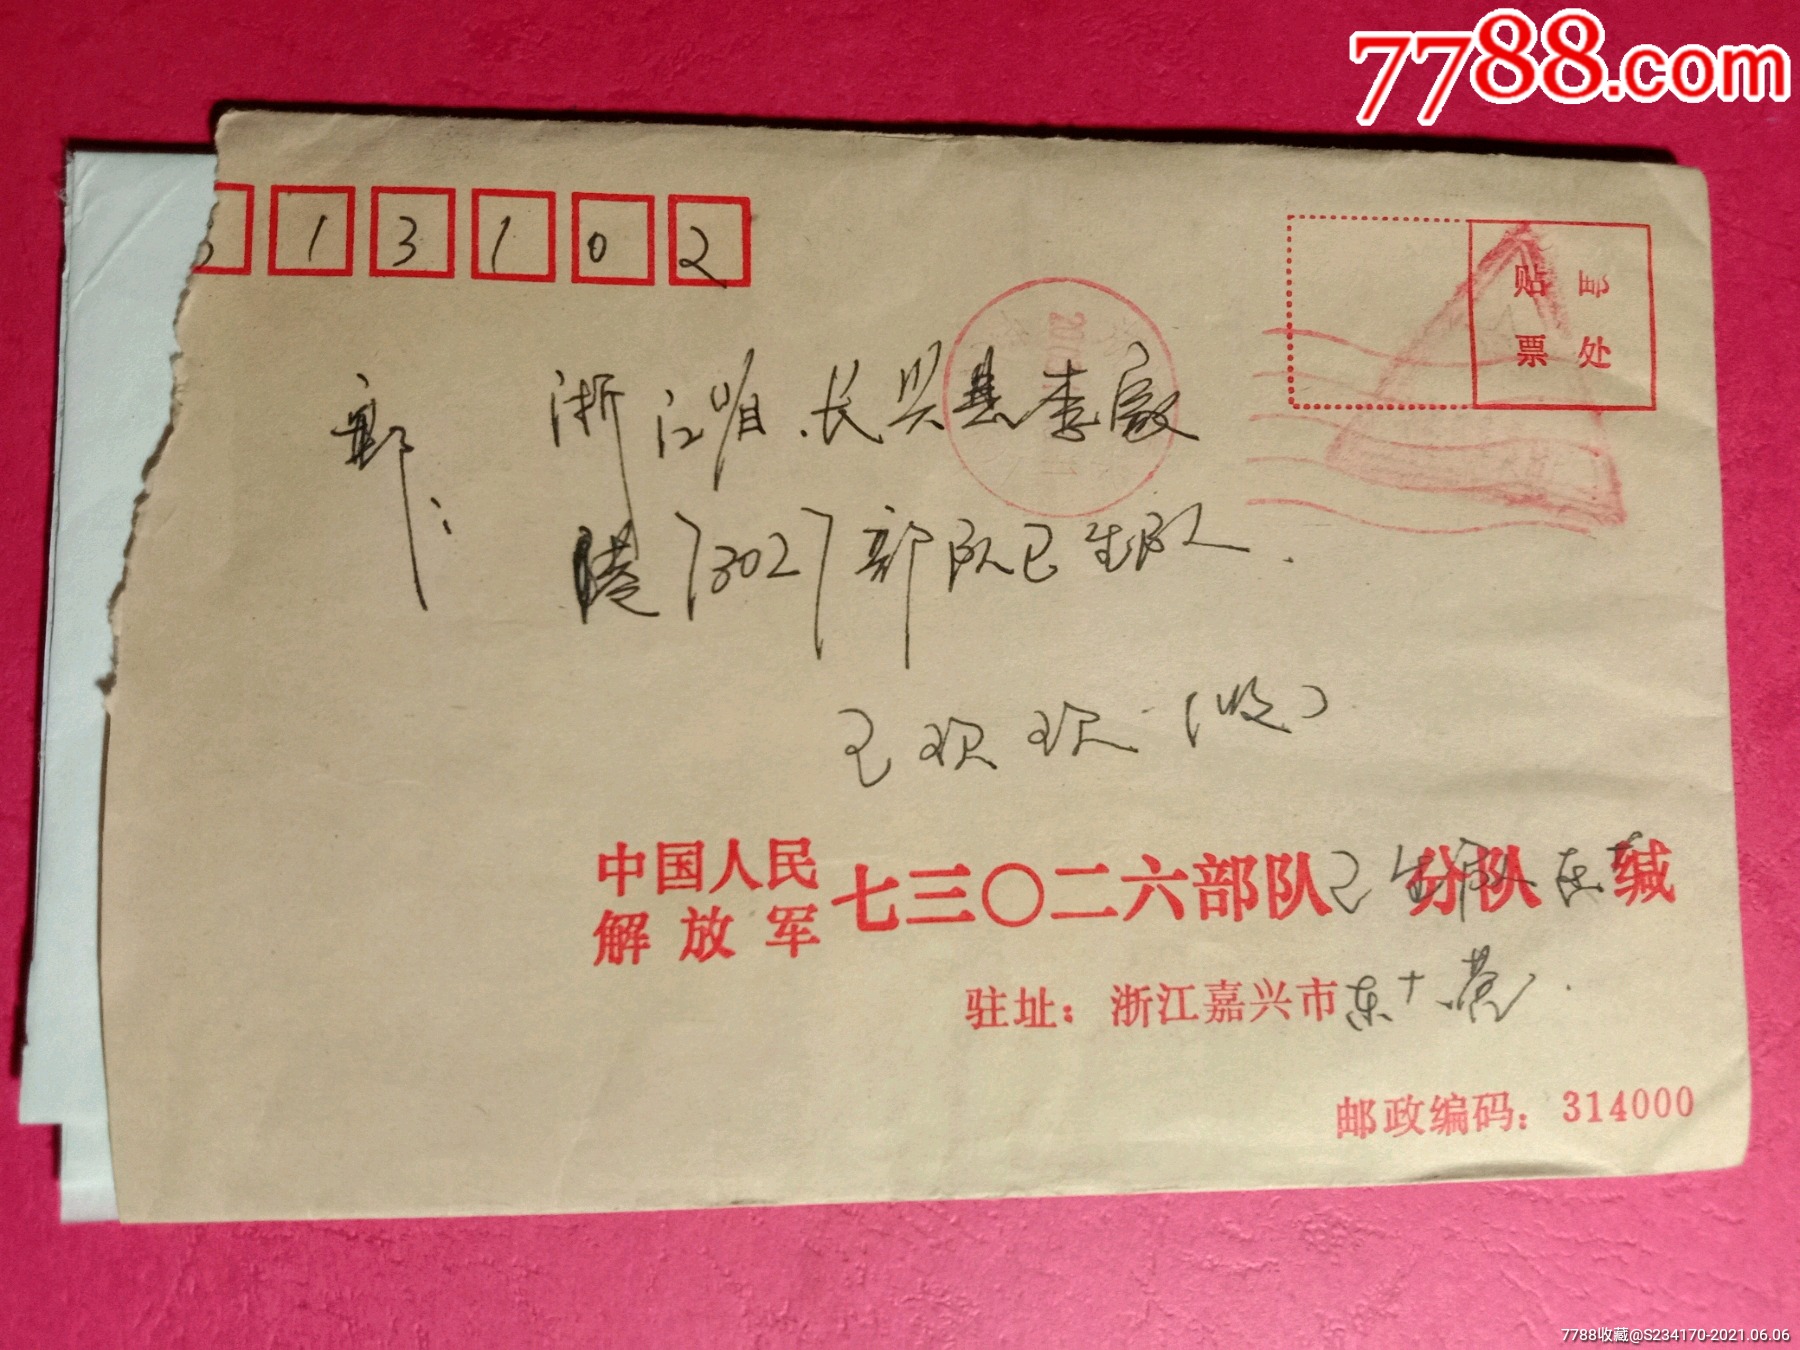 7788.com
313102
贴邮
票处
浙江省.长兴县李家
邮:
巷73027部队卫生队.
卫欢欢(收)
中国人民
解放军
七三〇二六部队卫生队分队缄
驻址:浙江嘉兴市东十巷.
邮政编码:314000
7788收藏@S234170-2021.06.06